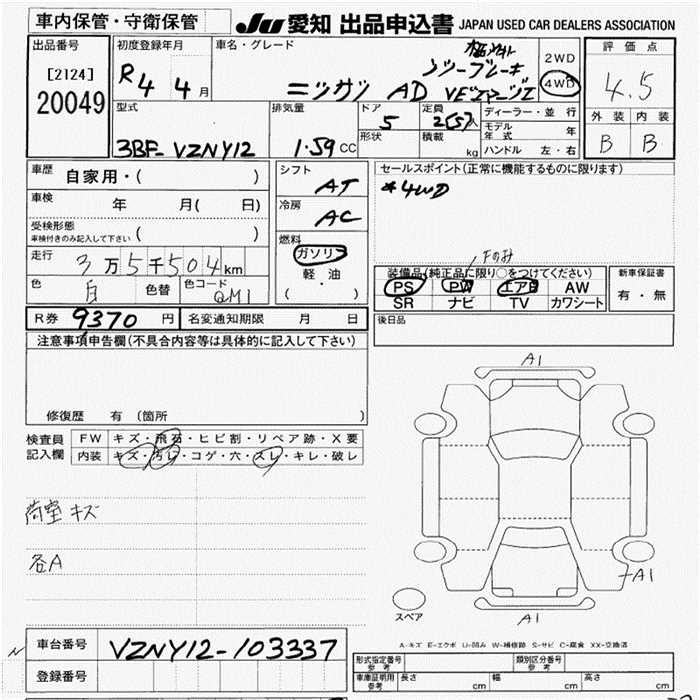 車内保管・守衛保管
JU 愛知 出品申込書 JAPAN USED CAR DEALERS ASSOCIATION
出品番号
[2124]
20049
初度登録年月
R4 4月
車名・グレード
エマージーブレーキ
ニッサン AD VEエマージE
2WD
4WD
評価点
4.5
外装 内装
B B
型式
3BF-VZNY12
排気量
1.59 CC
ドア
5
形状
定員
2(5)人
積載
kg
ディーラー・並行
モデル年式 年
ハンドル 左・右
車歴 自家用・( )
車検 年 月( 日)
受検形態
車検付きのみ記入して下さい ( )
走行 3万5千504km
色 白 色替 色コード QM1
シフト
AT
冷房
AC
燃料
ガソリン
軽・油
( )
セールスポイント(正常に機能するものに限ります)
*4WD
Fのみ
装備品(純正品に限り○をつけてください)
PS PW エアB AW
SR ナビ TV カワシート
新車保証書
有・無
R券 9370 円 名変通知期限 月 日
後日品
注意事項申告欄(不具合内容等は具体的に記入して下さい)
修復歴 有 (箇所 )
検査員記入欄
FW キズ・飛石・ヒビ割・リペア跡・X要
内装 キズ・汚レ・コゲ・穴・スレ・キレ・破レ
荷室 キズ
各A
A1
A1
A1
スペア
A-キズ E-エクボ U-凹み W-補修跡 S-サビ C-腐食 XX-交換済
車台番号 VZNY12-103337
登録番号
形式指定番号 参考
類別区分番号 参考
車庫証明用 参考 長さ cm 幅 cm 高さ cm